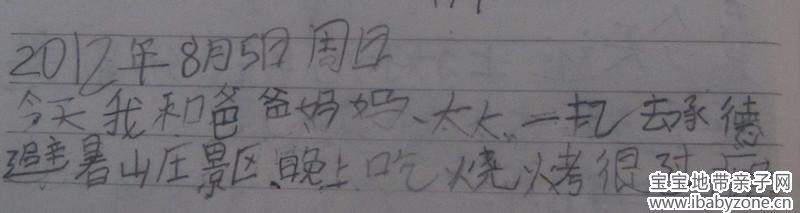 2012年8月5日 周日
今天我和爸爸妈妈、太太、一起去承德
避暑山庄景区、晚上吃烧烤很
宝宝地带亲子网
www.ibabyzone.cn